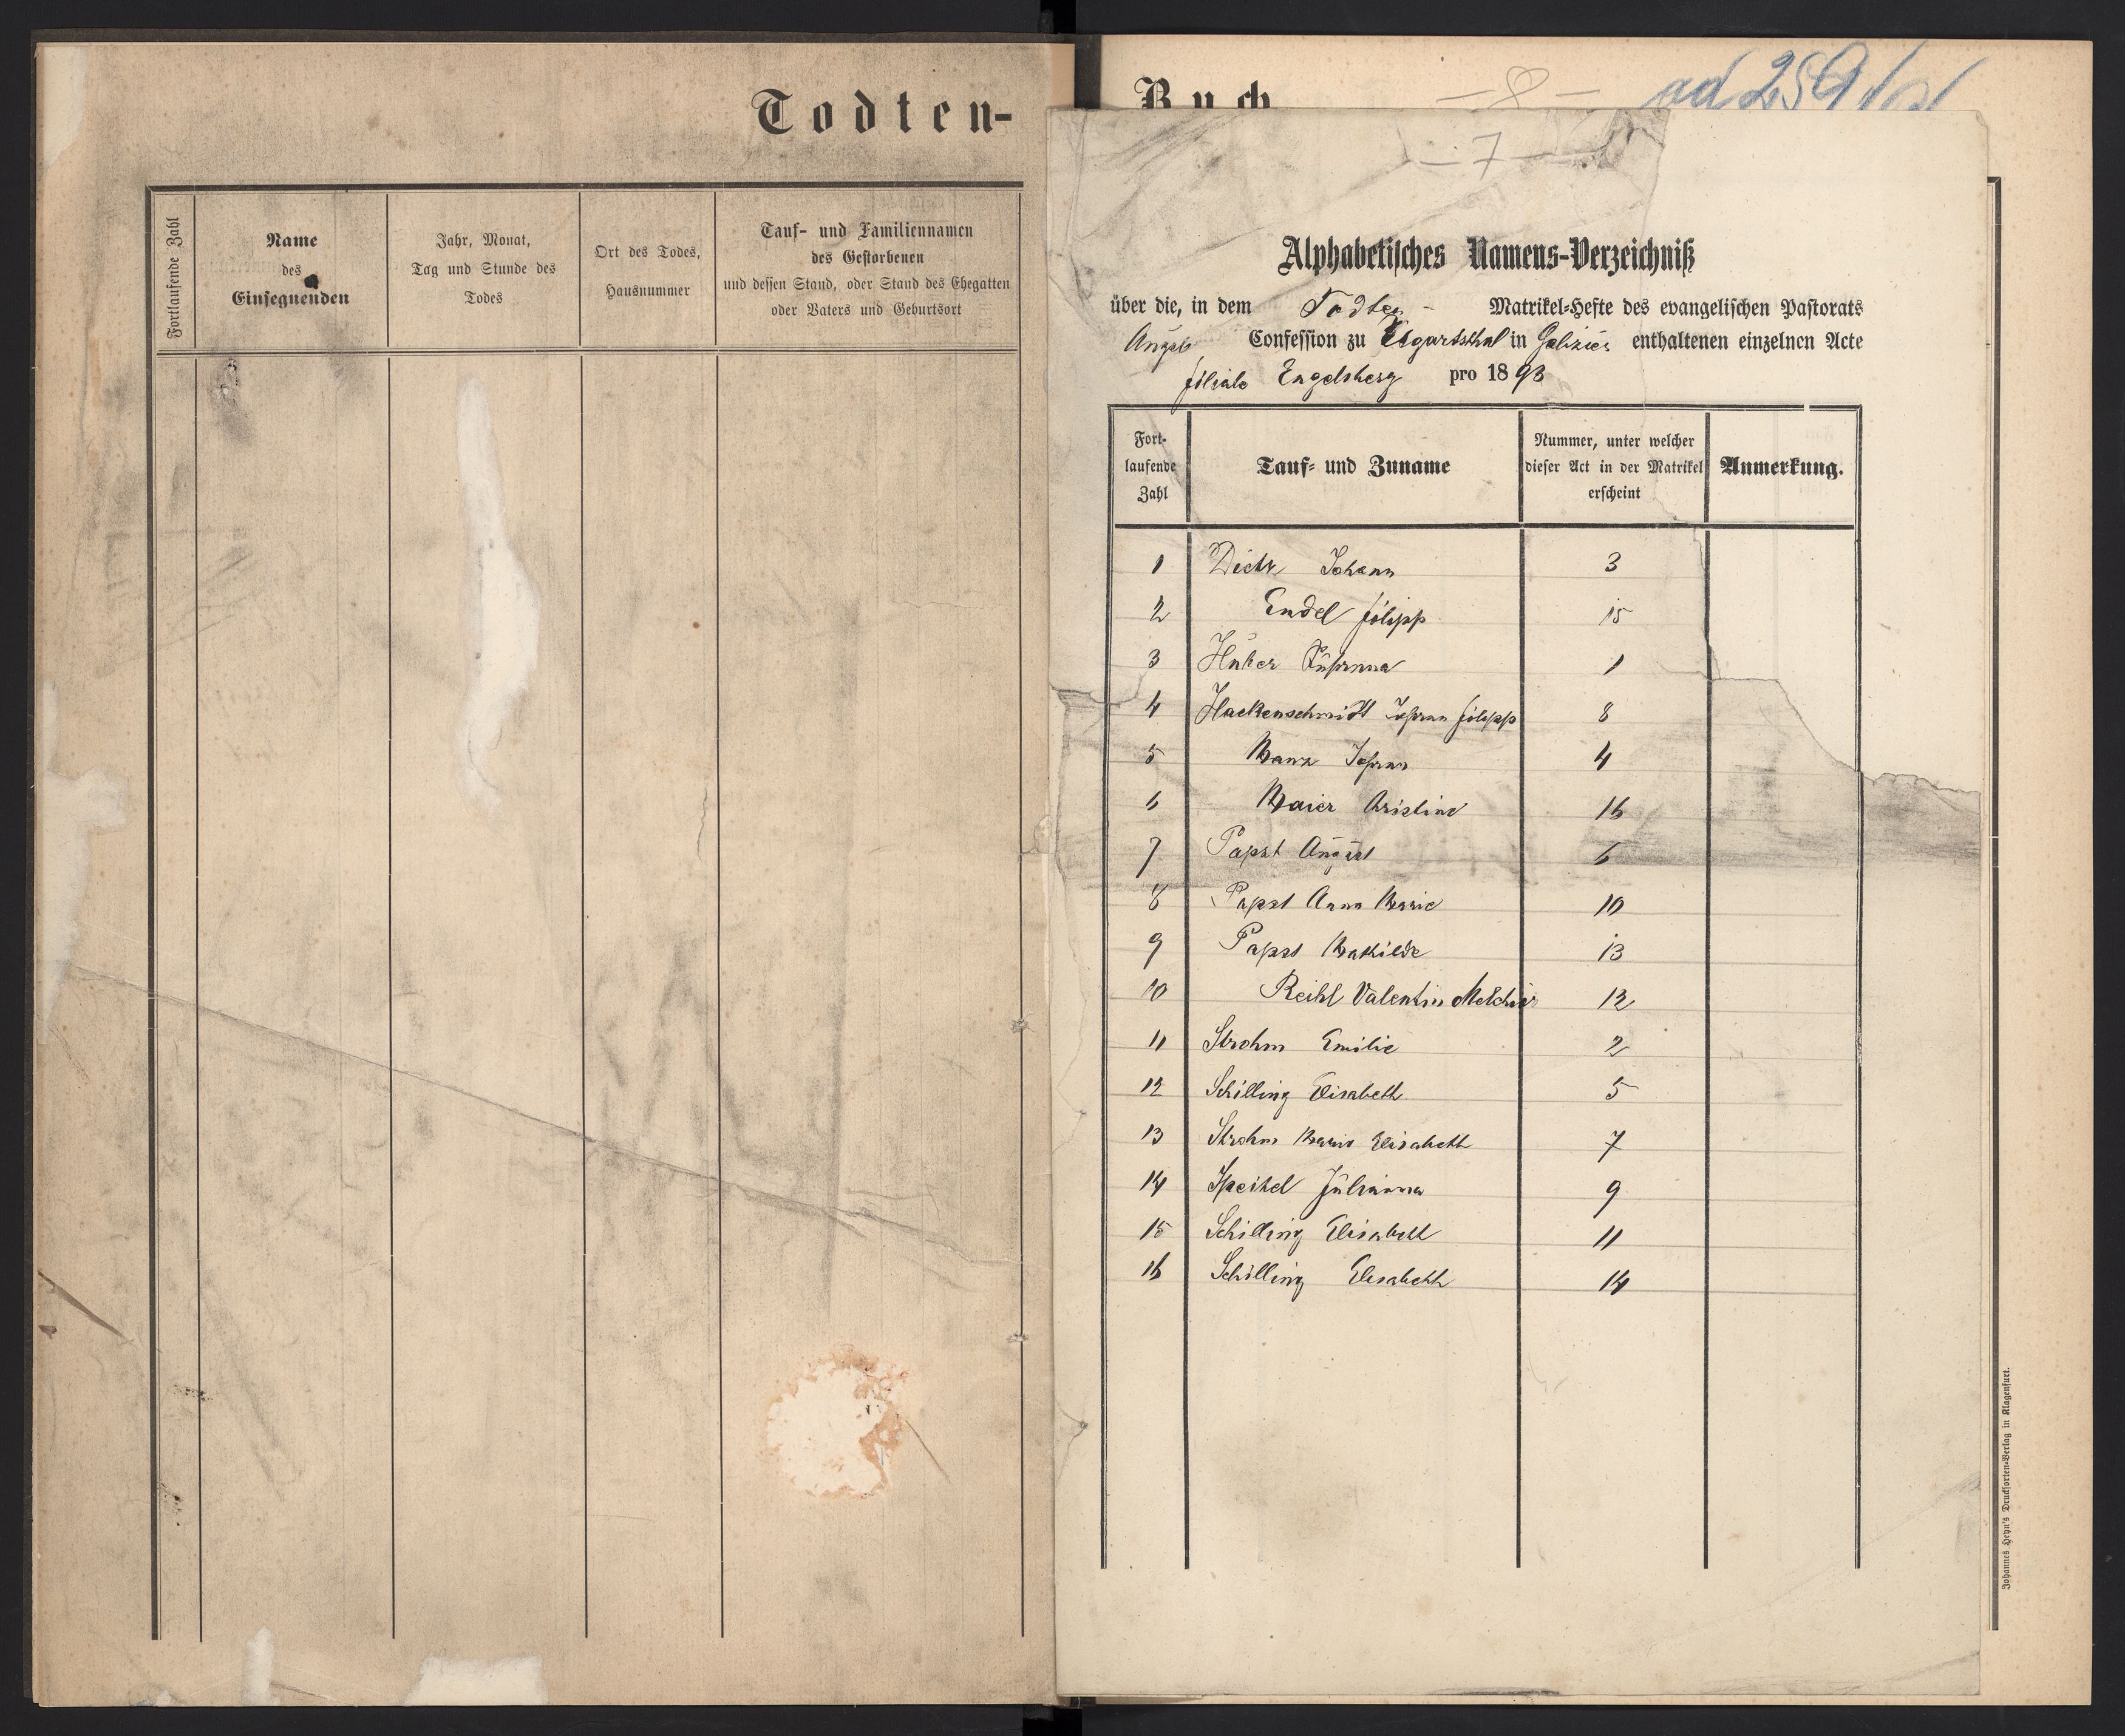 Todten-
Fortlaufende Zahl
Name
des
Einsegnenden
Jahr, Monat,
Tag und Stunde des
Todes
Ort des Todes,
Hausnummer
Tauf- und Familiennamen
des Gestorbenen
und dessen Stand, oder Stand des Ehegatten
oder Vaters und Geburtsort
Buch
- 8 -
ad 259
- 7 -
Alphabetisches Namens-Verzeichniß
über die, in dem Todten - Matrikel-Hefte des evangelischen Pastorats
Augsb Confession zu Ugartsthal in Galizien enthaltenen einzelnen Acte
filiale Engelsberg pro 1893
Fort-
laufende
Zahl
Tauf- und Zuname
Nummer, unter welcher
dieser Act in der Matrikel
erscheint
Anmerkung.
1 Johann 3
2 Endel Filipp 15
3 Huber 1
4 Hackenschmidt Johann Filipp 8
5 Manz Johann 4
6 Maier Kristine 16
7 Papst August 6
8 Papst Anna Marie 10
9 Papst Mathilde 13
10 Reihl Valentin Melchior 12
11 Strohm Emilie 2
12 Schilling Elisabeth 5
13 Strohm Marie Elisabeth 7
14 Julianna 9
15 Schilling Elisabeth 11
16 Schilling Elisabeth 14
Johannes Heyn's Drucksorten-Verlag in Klagenfurt.